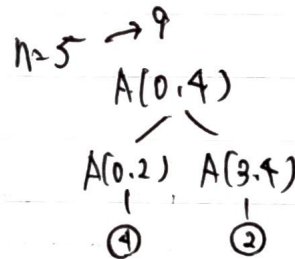 n=5 → 9
A(0,4)
A(0,2) A(3,4)
④ ②